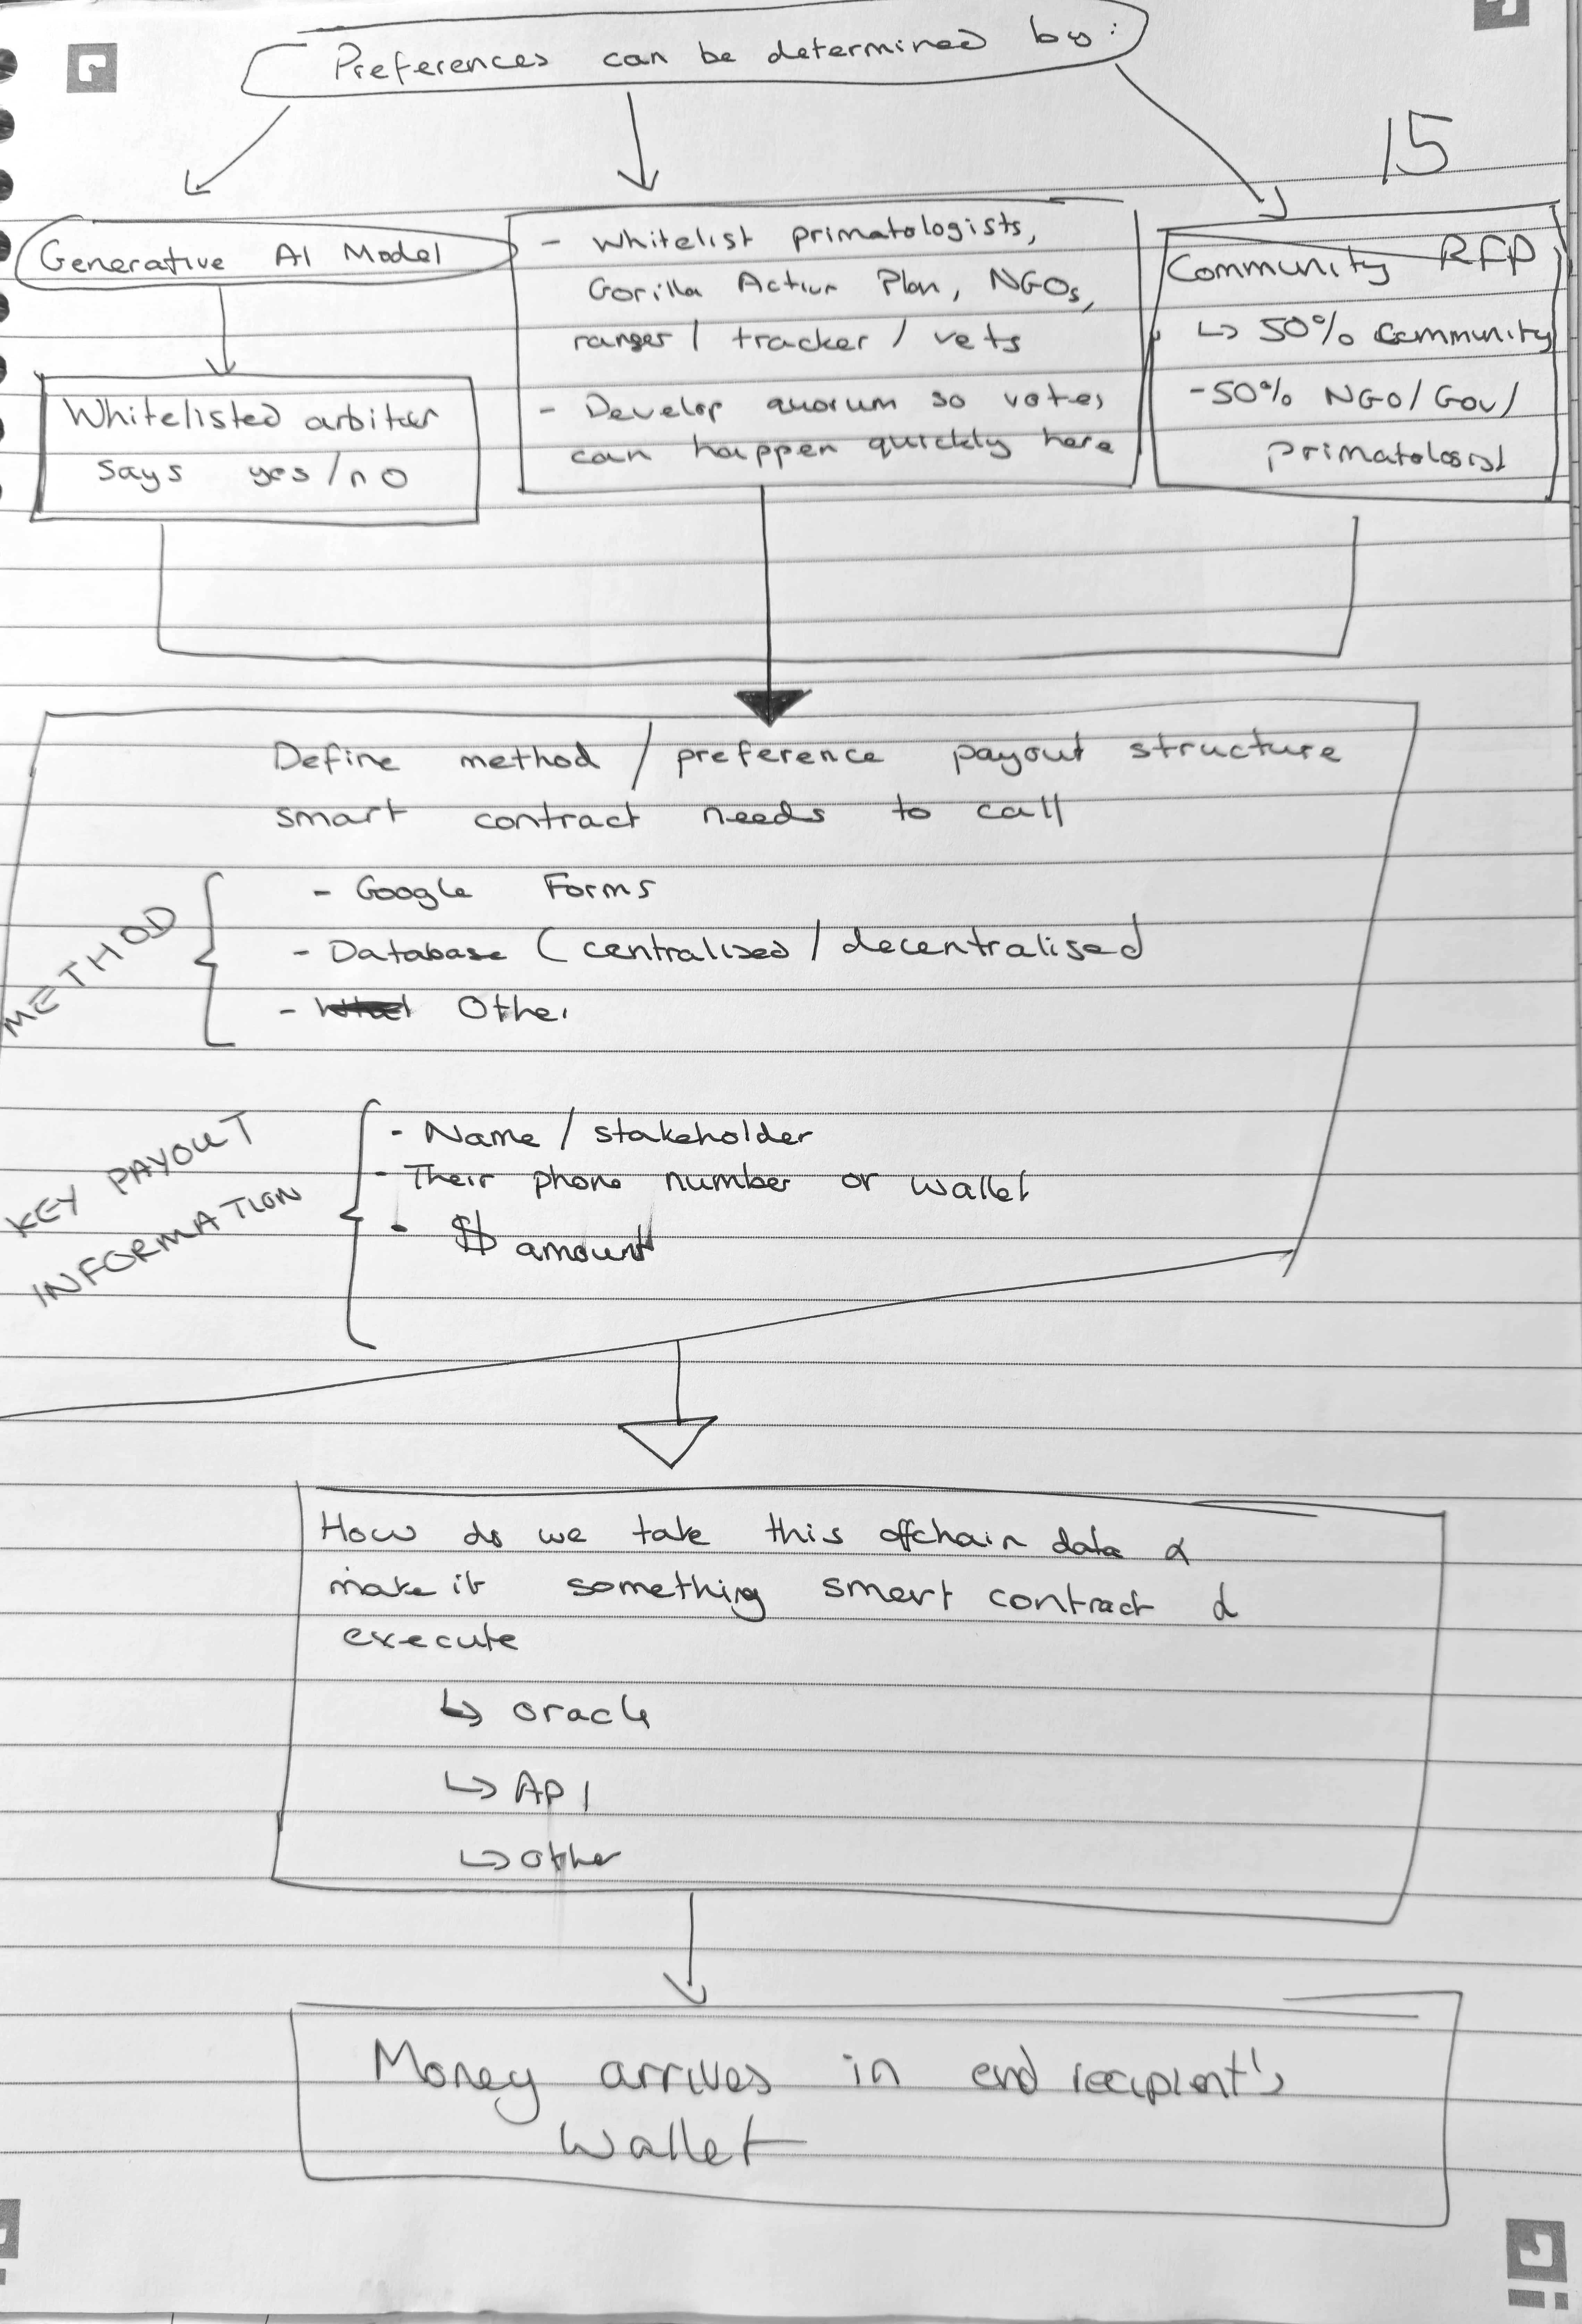 Preferences can be determined by:
15
Generative AI Model
Whitelisted arbiter
says yes/no
- Whitelist primatologists,
Gorilla Action Plan, NGOs,
ranger / tracker / vets
- Develop quorum so votes
can happen quickly here
Community RFP
↳ 50% Community
- 50% NGO/Gov/
primatologist
Define method / preference payout structure
smart contract needs to call
METHOD
- Google Forms
- Database (centralised / decentralised
- Other
KEY PAYOUT
INFORMATION
- Name / stakeholder
- Their phone number or wallet
- $ amount
How do we take this offchain data &
make it something smart contract &
execute
↳ Oracle
↳ API
↳ other
Money arrives in end recipient's
Wallet